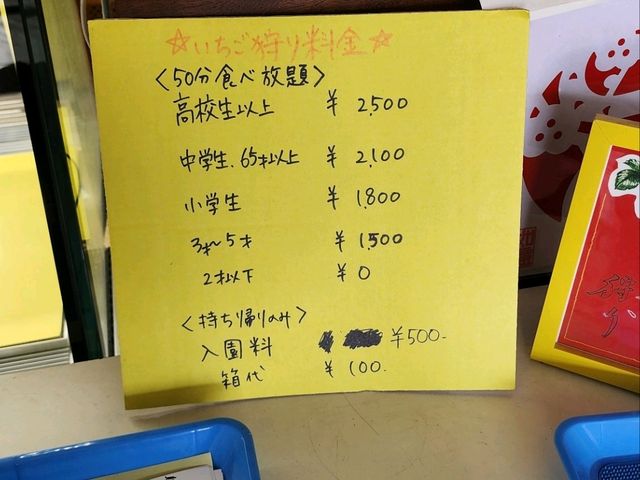 ☆いちご狩り料金☆
〈50分食べ放題〉
高校生以上 ¥2,500
中学生、65才以上 ¥2,100
小学生 ¥1,800
3才〜5才 ¥1,500
2才以下 ¥0
〈持ち帰りのみ〉
入園料 ¥500-
箱代 ¥100.
狩り